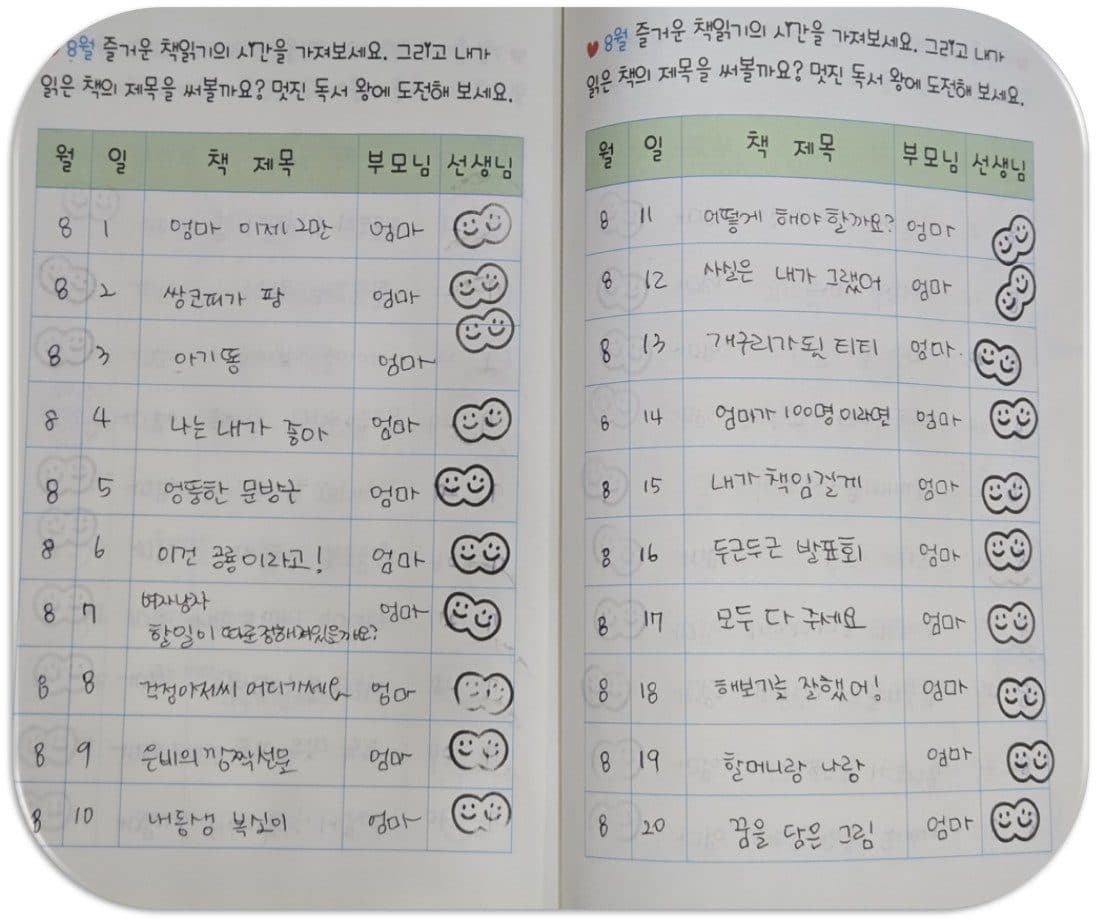 8월 즐거운 책읽기의 시간을 가져보세요. 그리고 내가
읽은 책의 제목을 써볼까요? 멋진 독서 왕에 도전해 보세요.
월 일 책 제목 부모님 선생님
8 1 엄마 이제 그만 엄마
8 2 쌍코피가 팡 엄마
8 3 아기똥 엄마
8 4 나는 내가 좋아 엄마
8 5 엉뚱한 문방구 엄마
8 6 이건 공룡이라고! 엄마
8 7 여자남자 엄마
할일이 따로정해져있을까요?
8 8 걱정아저씨 어디가세요 엄마
8 9 은비의 깜짝선물 엄마
8 10 내동생 복실이 엄마
♥ 8월 즐거운 책읽기의 시간을 가져보세요. 그리고 내가
읽은 책의 제목을 써볼까요? 멋진 독서 왕에 도전해 보세요.
월 일 책 제목 부모님 선생님
8 11 어떻게 해야 할까요? 엄마
8 12 사실은 내가 그랬어 엄마
8 13 개구리가 된 티티 엄마.
8 14 엄마가 100명 이라면 엄마
8 15 내가 책임질게 엄마
8 16 두근두근 발표회 엄마
8 17 모두 다 주세요 엄마
8 18 해보기를 잘했어! 엄마
8 19 할머니랑 나랑 엄마
8 20 꿈을 담은 그림 엄마